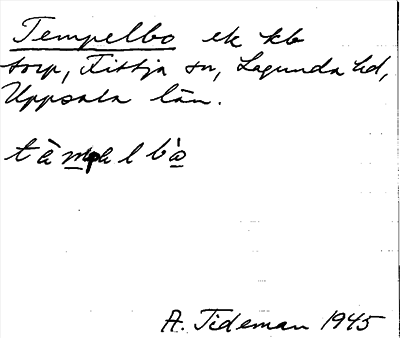 Tempelbo ek kb
torp, Fittja sn, Lagunda hd,
Uppsala län.
tàmpalbò
A. Tideman 1945